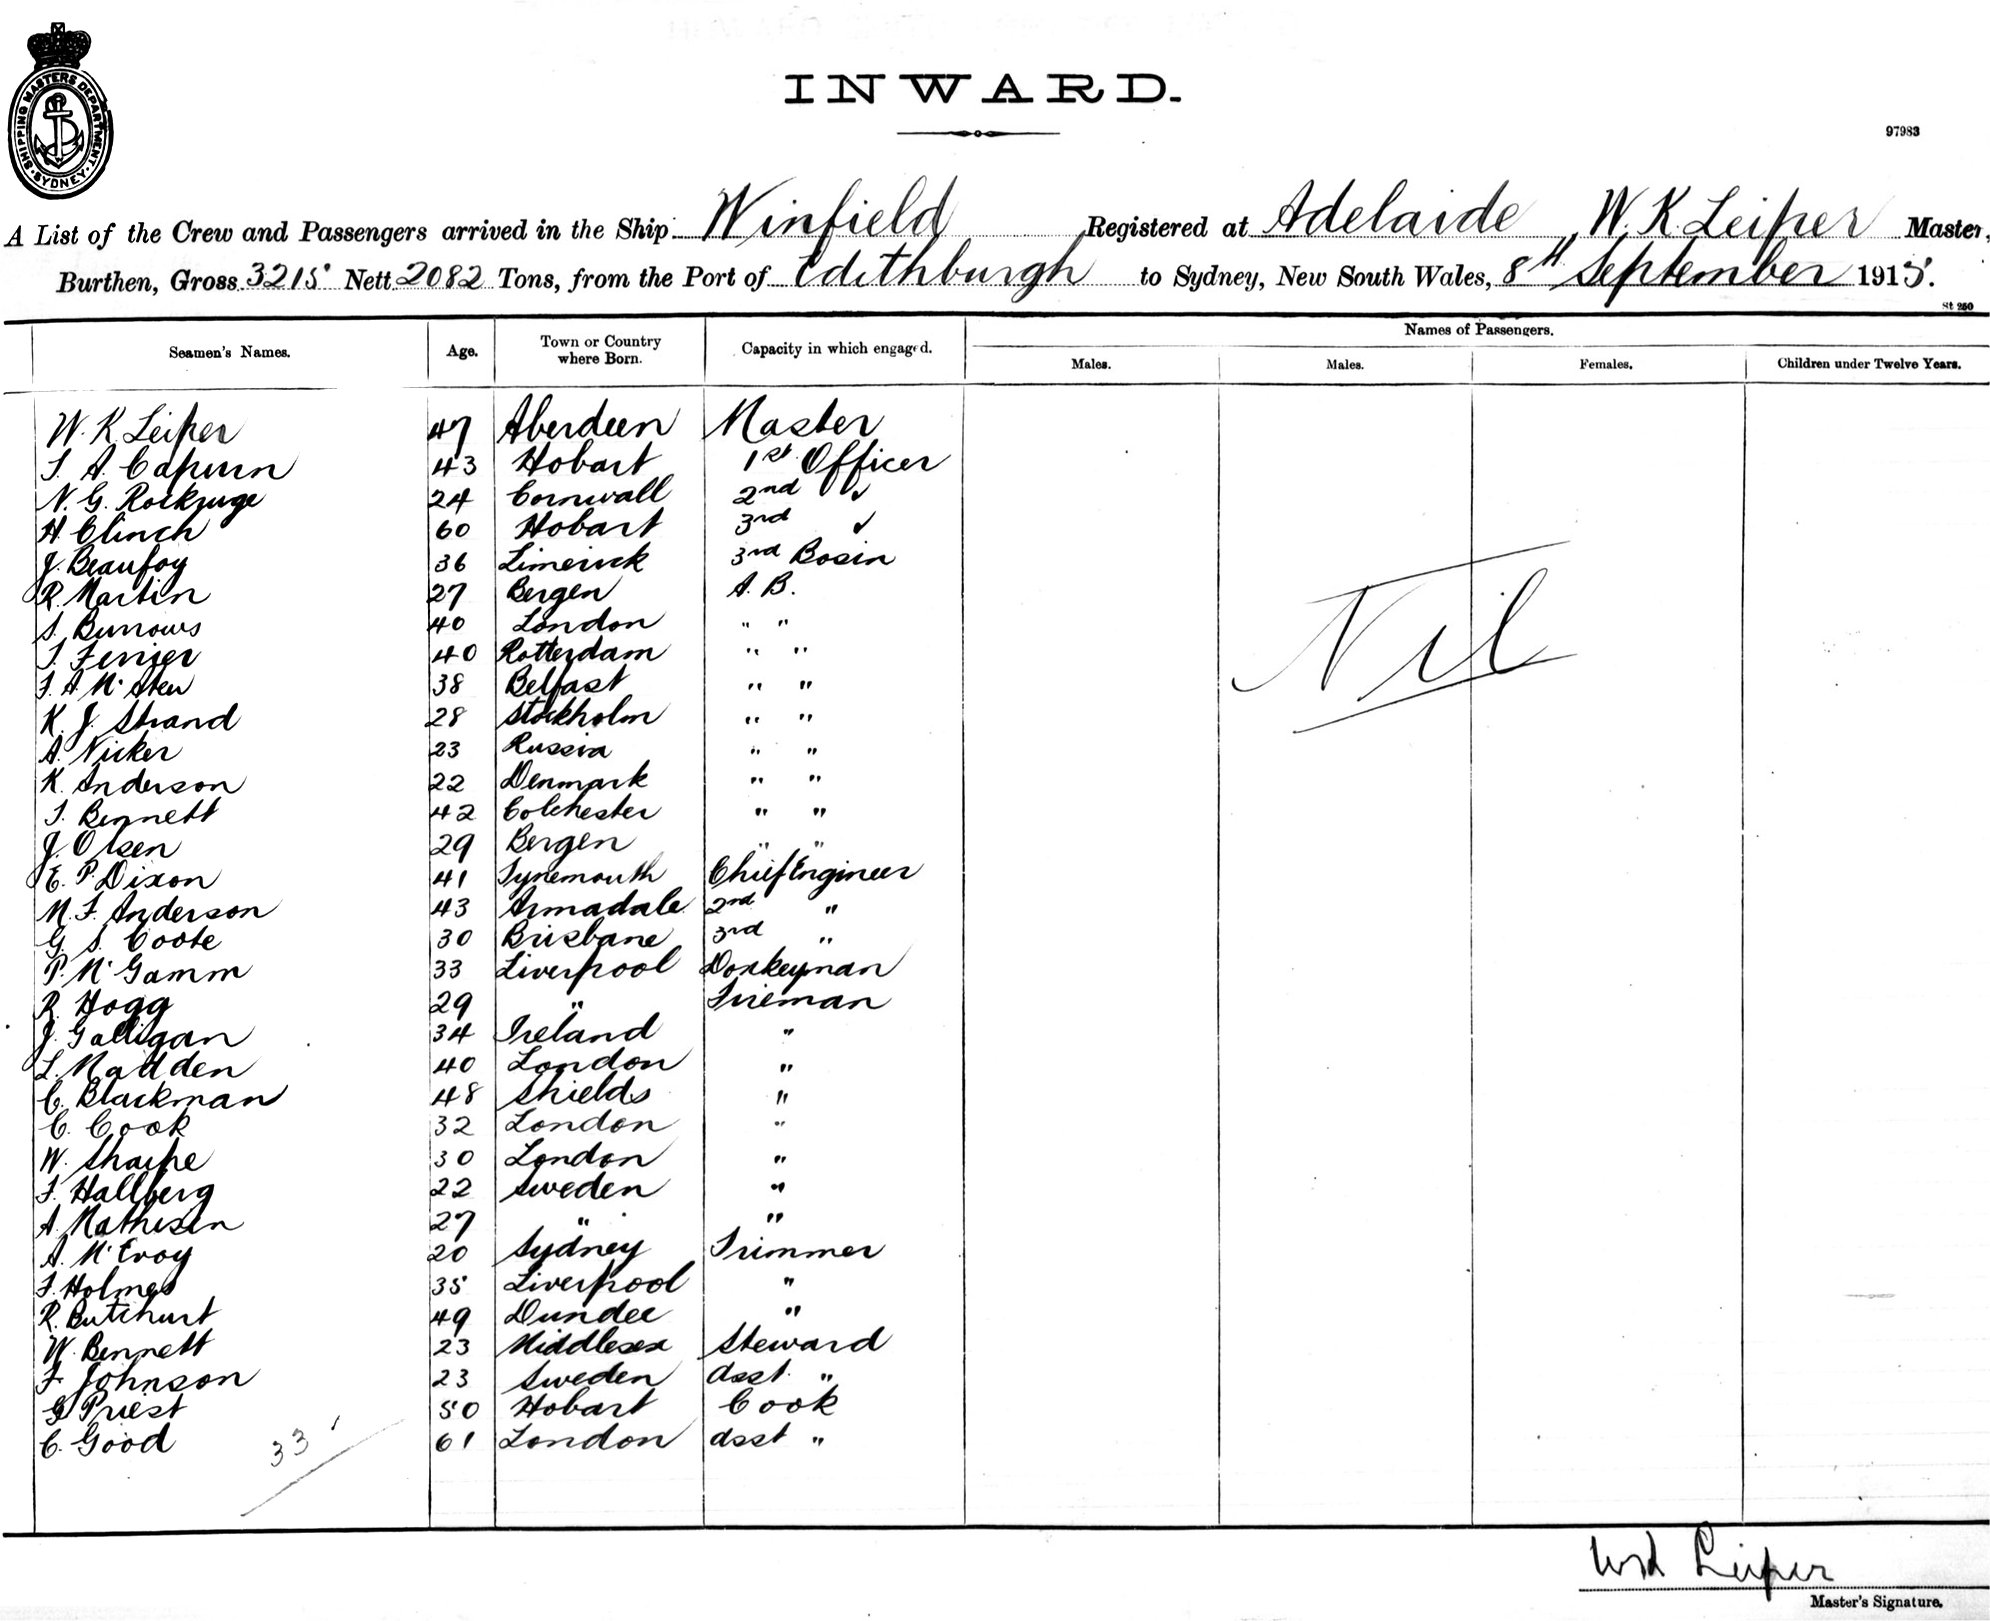 SHIPPING MASTERS DEPARTMENT SYDNEY
INWARD.
97983
A List of the Crew and Passengers arrived in the Ship Winfield Registered at Adelaide W. K. Leiper Master,
Burthen, Gross 3215 Nett 2082 Tons, from the Port of Edithburgh to Sydney, New South Wales, 8th September 1915.
St 250
Seamen's Names. Age. Town or Country where Born. Capacity in which engaged. Names of Passengers.
Males. Males. Females. Children under Twelve Years.
W. K. Leiper 47 Aberdeen Master
T. A. Capurn 43 Hobart 1st Officer
N. G. Rockruge 24 Cornwall 2nd ✓
H Clinch 60 Hobart 3rd ✓
J. Beaufoy 36 Limerick 3rd Bosin
R. Martin 27 Bergen A. B.
S. Burrows 40 London " "
T. Ferrier 40 Rotterdam " "
38 Belfast " "
K. J. Strand 28 Stockholm " "
A. Nicker 23 Russia " "
K. Anderson 22 Denmark " "
T. Bennett 42 Colchester " "
J. Olsen 29 Bergen " "
E. P. Dixon 41 Tynemouth Chief Engineer
M. F. Anderson 43 Armadale 2nd "
G. S. Coote 30 Brisbane 3rd "
P. McGamm 33 Liverpool Donkeyman
R. Hogg 29 " Fireman
J. Galligan 34 Ireland "
L. Madden 40 London "
C. Blackman 48 Shields "
C. Cook 32 London "
W. Sharpe 30 London "
F. Hallberg 22 Sweden "
A. Mathisen 27 " "
A. McEvoy 20 Sydney Trimmer
F. Holmes 35 Liverpool "
R. Butchart 49 Dundee "
W. Bennett 23 Middlesex Steward
F. Johnson 23 Sweden asst. "
G Priest 50 Hobart Cook
C. Good 61 London asst "
33
Nil
W K Leiper
Master's Signature.